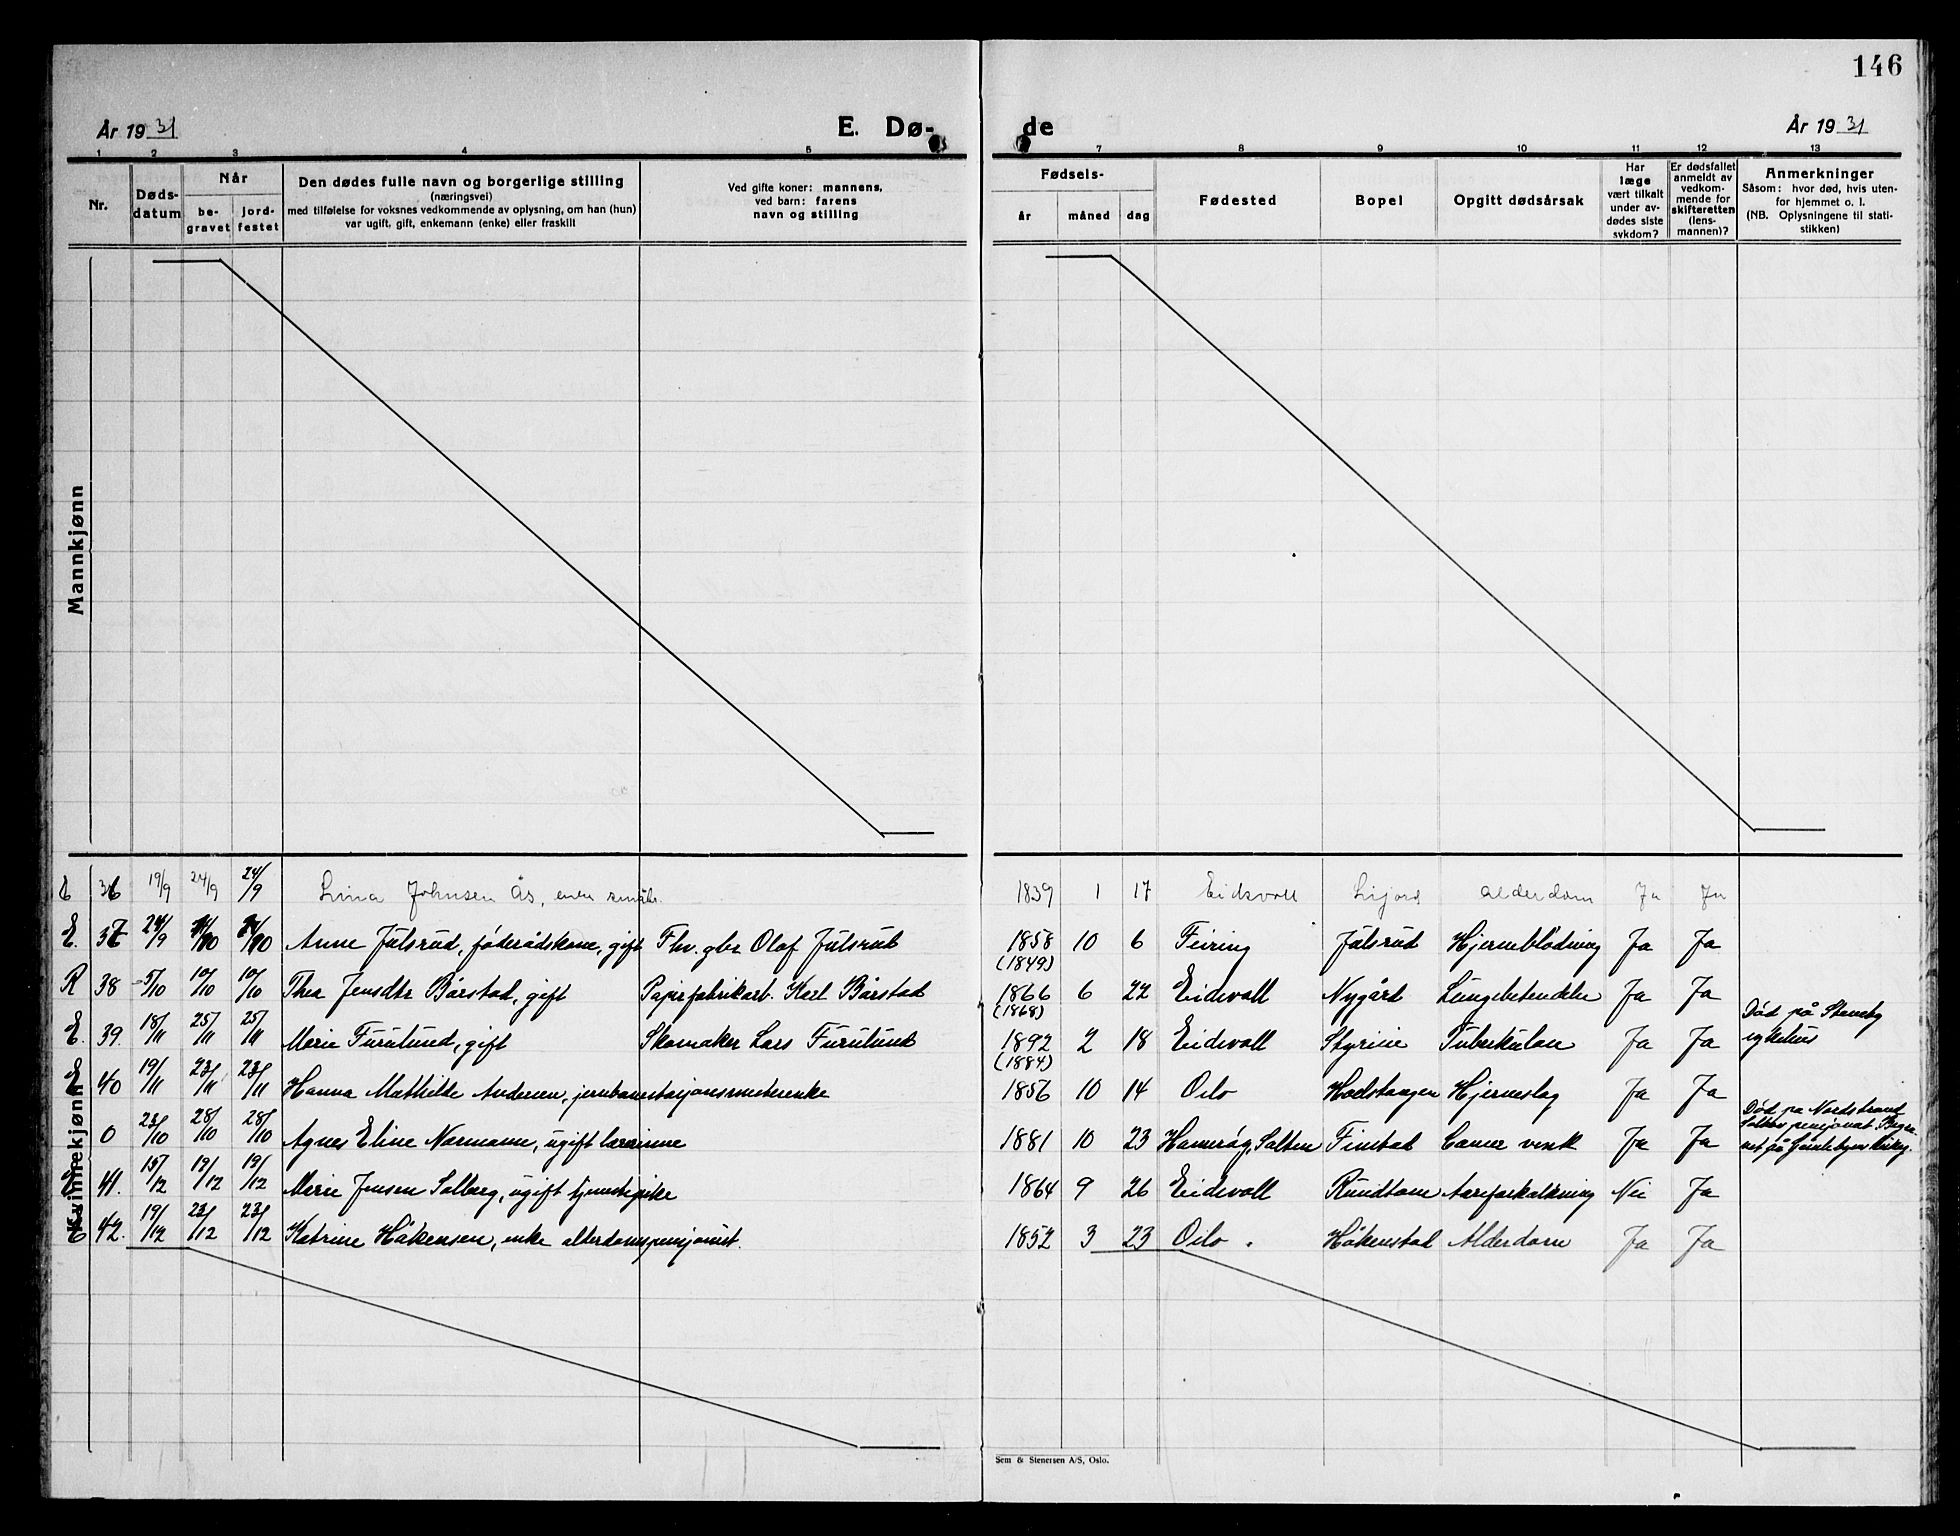 146
År 1931 E. Dø- de År 1931
1 2 3 4 5 7 8 9 10 11 12 13
Nr.
Døds-
datum
Når
be-
gravet
jord-
festet
Den dødes fulle navn og borgerlige stilling
(næringsvei)
med tilføielse for voksnes vedkommende av oplysning, om han (hun)
var ugift, gift, enkemann (enke) eller fraskilt
Ved gifte koner: mannens,
ved barn: farens
navn og stilling
Fødsels-
år måned dag
Fødested
Bopel
Opgitt dødsårsak
Har
læge
vært tilkalt
under av-
dødes siste
sykdom?
Er dødsfallet
anmeldt av
vedkom-
mende for
skifteretten
(lens-
mannen)?
Anmerkninger
Såsom: hvor død, hvis uten-
for hjemmet o. l.
(NB. Oplysningene til stati-
stikken)
Mannkjønn
Kvinnekjønn
E 36 19/9 24/9 24/9 Lina Johnsen Ås, enke 1839 1 17 Eidsvoll alderdom Ja Ja
E. 37 24/9 Anne Julsrud, føderådskone, gift Fhv. gbr Olaf Julsrud 1858 10 6 Feiring Julsrud Hjerneblødning Ja Ja
(1849)
R 38 5/10 10/10 10/10 Thea Jensdtr Bårstad, gift Papirfabrikarb. Karl Bårstad 1866 6 22 Eidsvoll Nygård Lungebetendelse Ja Ja
(1868)
E. 39. 18/11 25/11 25/11 Marie Furulund, gift Skomaker Lars Furulund 1892 2 18 Eidsvoll Styrive Tuberkulose Ja Ja Død på Stensby
sykehus
(1884)
E 40 19/11 23/11 23/11 Hanna Mathilde Andersen, jernbanestasjonsmesterenke 1856 10 14 Oslo Hodstangen Hjerneslag Ja Ja
0 23/10 28/10 28/10 Agnes Eline Normann, ugift lærerinne 1881 10 23 Hamarøy, Salten Finstad Cancer ventr Ja Ja Død på Nordstrand
Solhov pensjonat. Begra-
vet på kirkeg.
E 41. 15/12 19/12 19/12 Marie Jensen Solberg, ugift tjenestepike 1864 9 26 Eidsvoll Rundtom Aareforkalkning Nei Ja
E 42. 19/12 23/12 23/12 Katrine Håkensen, enke alderdomspensjonist. 1852 3 23 Oslo. Håkenstad Alderdom Ja Ja
Sem & Stenersen A/S, Oslo.